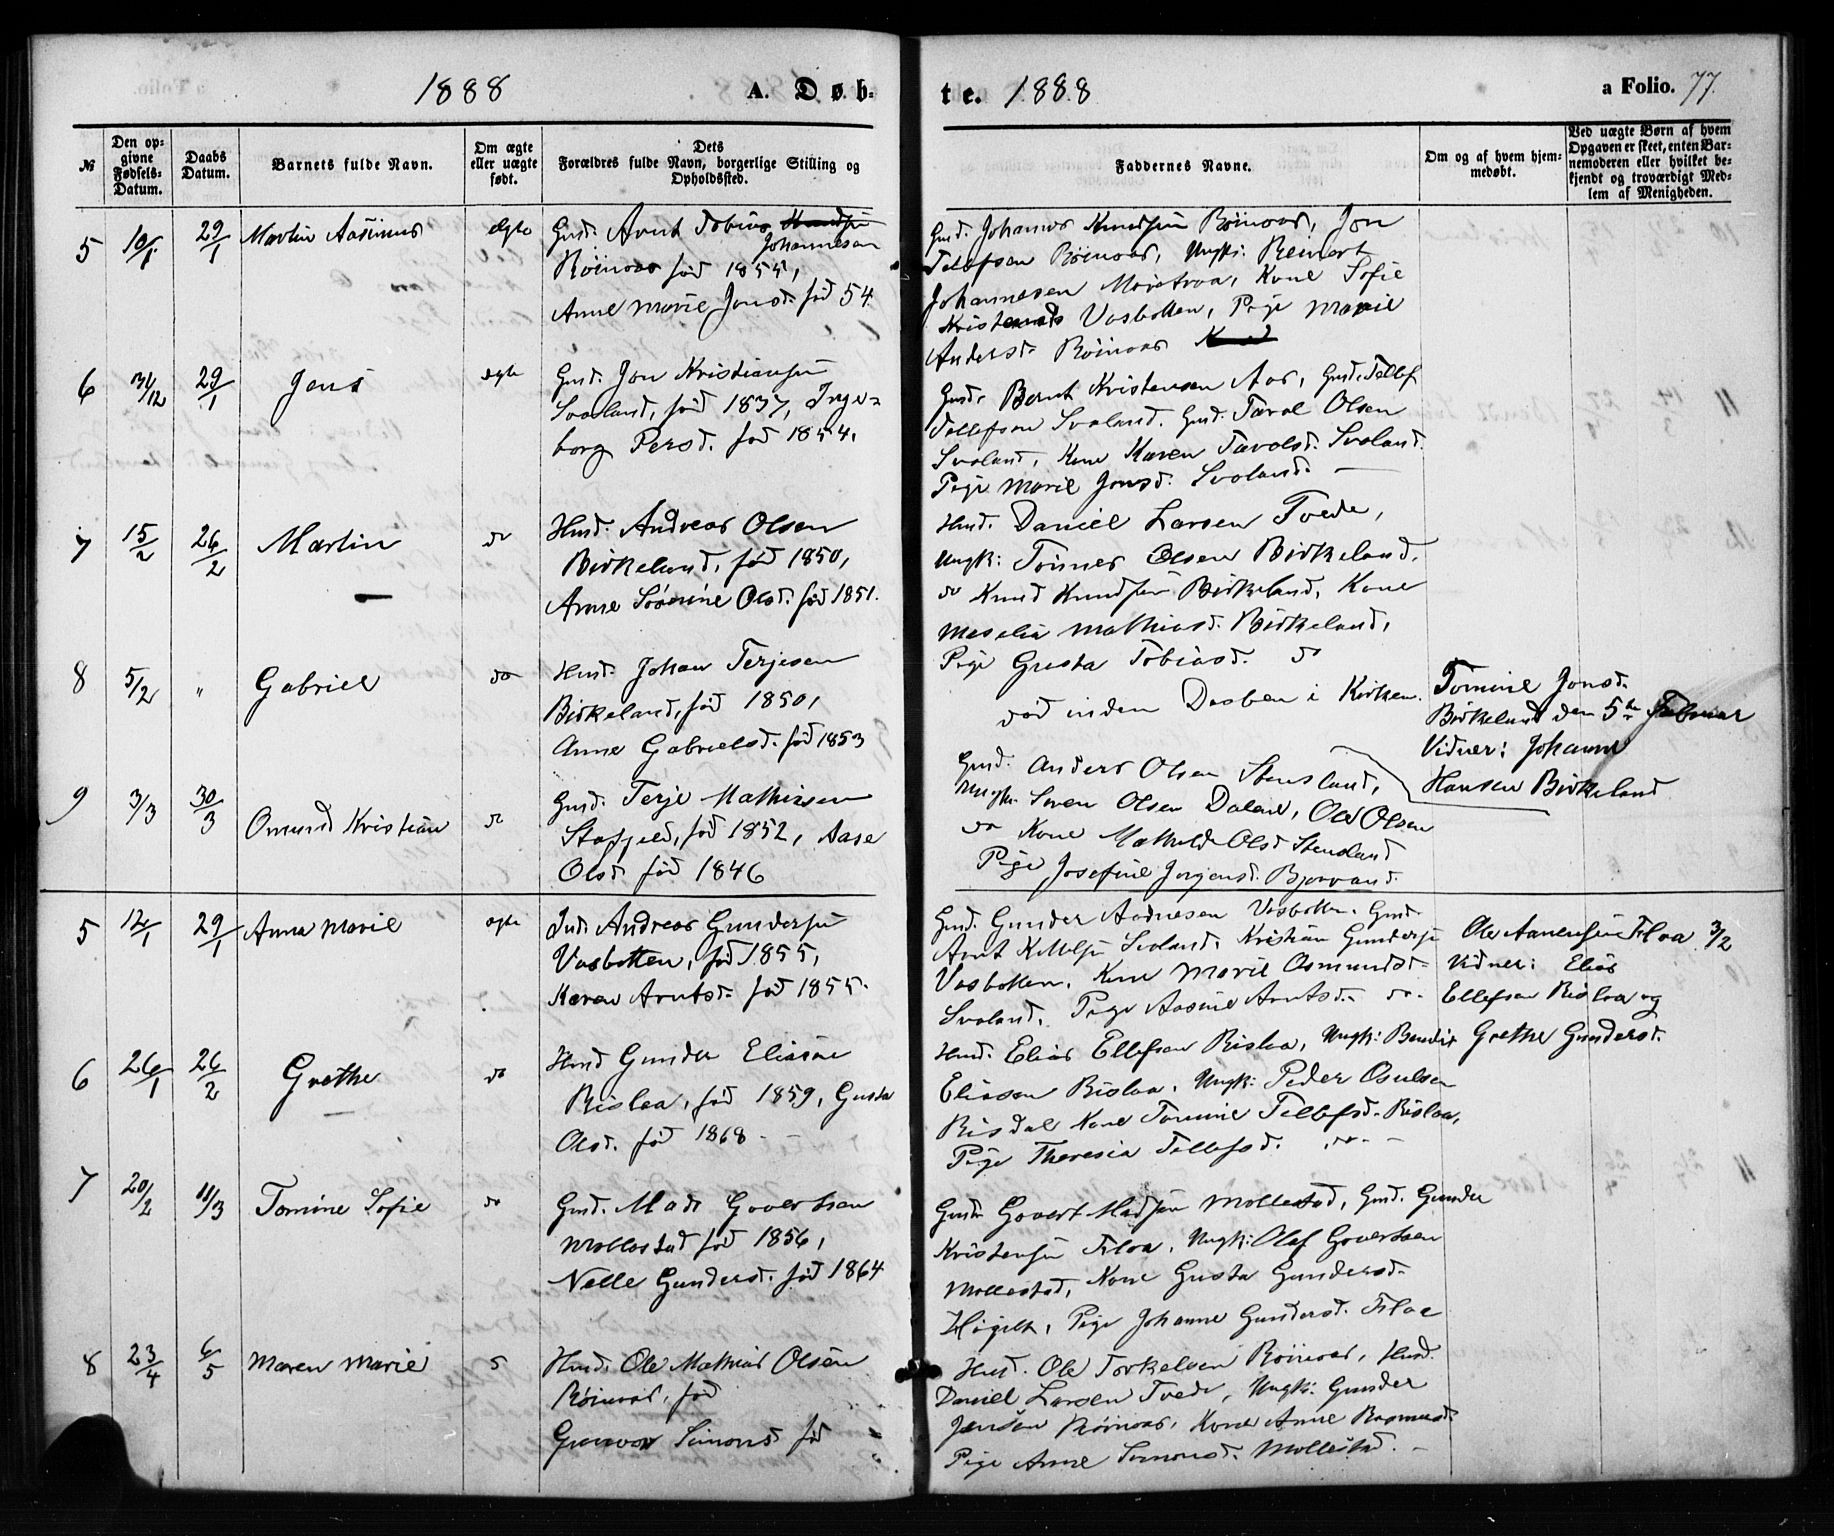 1888 A. Døb-
№
Den opgivne Fødsels-Datum.
Daabs Datum.
Barnets fulde Navn.
Om ægte eller uægte født.
Dets Forældres fulde Navn, borgerlige Stilling og Opholdssted.
5 10/1 29/1 Martin Aasinus ægte Gmd. Arnt Tobias
Johannesen
Röinaas föd 1855,
Anne Marie Jonsd. föd 54.
6 31/12 29/1 Jens ægte Gmd. Jon Kristiansen
Svaland, föd 1837, Inge=
borg Persd. föd 1854.
7 15/2 26/2 Martin do Husd. Andreas Olsen
Birkeland, föd 1850,
Anne Sörine Olsd. föd 1851.
8 5/2 " Gabriel do Husd. Johan Terjesen
Birkeland, föd 1850,
Anne Gabrielsd. föd 1853
9 3/3 30/3 Omund Kristian do Gmd. Terje Mathisen
Stapfjeld, föd 1852, Aase
Olsd föd 1846
5 12/1 29/1 Anna Marie ægte Ind. Andreas Gundersen
Vasbotten, föd 1855,
Karen Arntsd. föd 1855.
6 26/1 26/2 Grethe do Husd Gunder Eliasen
Risloa, föd 1859, Gusta
Olsd. föd 1868.
7 20/2 11/3 Tomine Sofie do Gmd. Mads Govertsen
Mollestad föd 1856,
Nelle Gundersd. föd 1864
8 23/4 6/5 Maren Marie Husd. Ole Mathias Olsen
Röinaas, föd
Gunvor Simonsd föd
te. 1888 a Folio. 77.
Faddernes Navne.
Om og af hvem hjemmedøbt.
Ved uægte Børn af hvem Opgaven er skeet, enten Barnemoderen eller hvilket bekjendt og troværdigt Medlem af Menigheden.
Gmd. Johannes Knudsen Röinaas, Jon
Tellefsen Röinaas, Ungk: Reinert
Johannesen, Kone Sofie
Vasbotten, Pige Marie
Andersd. Röinaas
Gmd. Bernt Kristensen Aas, Gmd. Tellef
Tellefsen Svaland. Gmd. Taral Olsen
Svaland, Kone Karen Taralsd. Svaland.
Pige Marie Jonsd. Svaland.
Husd. Daniel Larsen Tvede,
Ungk: Tönnes Olsen Birkeland.
do Knud Knudsen Birkeland, Kone
Meselia Mathiasd. Birkeland,
Pige Gusta Tobiasd. do
död inden Daaben i Kirken. Tomine Jonsd.
Birkeland den 5te Februar
Vidner: Johanne
Hansen Birkeland
Gmd. Anders Olsen Stensland,
Ungk. Soren Olsen Dalene, Ole Olsen
do Kone Mathilde Olsd Stensland
Pige Josefine Jorgensd. Bjorvand.
Gmd. Gunder Aadnesen Vasbotten. Gmd.
Arnt Svaland, Kristian Gundersen
Vasbotten. Kone Marie Osmundsd
Svaland. Pige Aasine Arntsd. do.
Ole Aanensen Floa 3/2
Vidner: Elias
Ellefsen Risloa og
Grethe Gundersd.
Husd. Elias Ellefsen Risloa, Ungk: Bendix
Eliasen Risloa. Ungk: Peder Osulsen
Risdal Kone Tomine Tellefsd. Risloa,
Pige Theresia Tellefsd. do.
Gmd Govert Madsen Mollestad, Gmd. Gunder
Kristensen Floa. Ungk: Olaf Govertsen
Mollestad, Kone Gusta Gundersd.
Högelt, Pige Johanne Gundersd. Floa
Husd. Ole Torkelsen Röinaas, Husd.
Daniel Larsen Tvede, Ungk: Gunder
Jensen Röinaas, Kone Anne Rasmusd.
Pige Anne Simonsd. Mollestad.